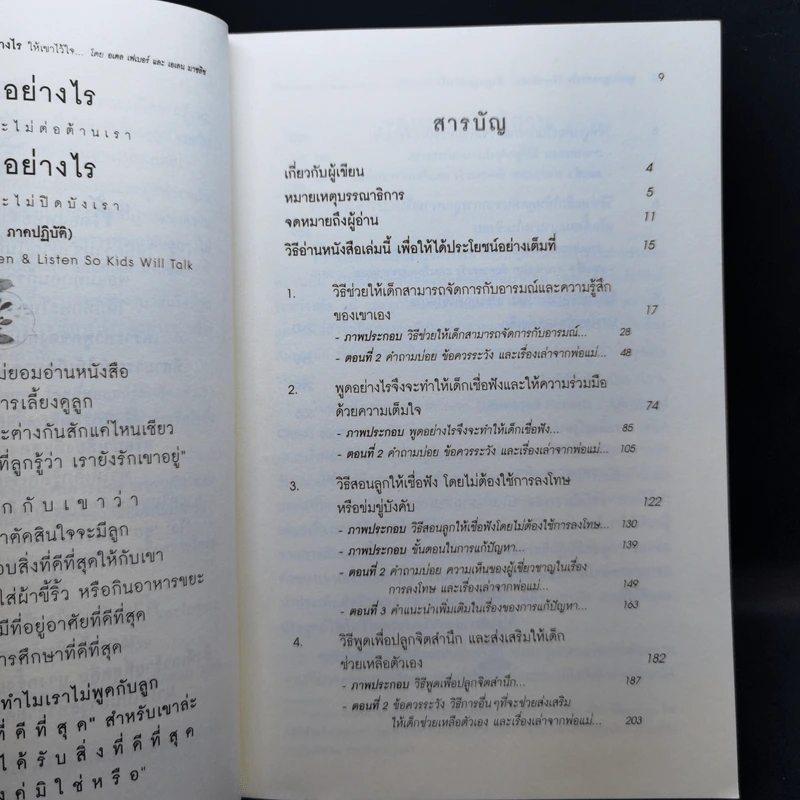 างไร ให้เขาไว้ใจ... โดย อเดล เฟเบอร์ และ เอเลน มาซลิช
อย่างไร
ะไม่ต่อต้านเรา
อย่างไร
ะไม่ปิดบังเรา
ภาคปฏิบัติ)
en & Listen So Kids Will Talk
ม่ยอมอ่านหนังสือ
การเลี้ยงดูลูก
ะต่างกันสักแค่ไหนเชียว
ที่ลูกรู้ว่า เรายังรักเขาอยู่"
กกับเขาว่า
าตัดสินใจจะมีลูก
อบสิ่งที่ดีที่สุดให้กับเขา
ใส่ผ้าขี้ริ้ว หรือกินอาหารขยะ
มีที่อยู่อาศัยที่ดีที่สุด
ารศึกษาที่ดีที่สุด
ทำไมเราไม่พูดกับลูก
ที่ดีที่สุด" สำหรับเขาล่ะ
ได้รับสิ่งที่ดีที่สุด
งคู่มิใช่หรือ"
9
สารบัญ
เกี่ยวกับผู้เขียน 4
หมายเหตุบรรณาธิการ 5
จดหมายถึงผู้อ่าน 11
วิธีอ่านหนังสือเล่มนี้ เพื่อให้ได้ประโยชน์อย่างเต็มที่ 15
1. วิธีช่วยให้เด็กสามารถจัดการกับอารมณ์และความรู้สึก
ของเขาเอง 17
- ภาพประกอบ วิธีช่วยให้เด็กสามารถจัดการกับอารมณ์... 28
- ตอนที่ 2 คำถามบ่อย ข้อควรระวัง และเรื่องเล่าจากพ่อแม่... 48
2. พูดอย่างไรจึงจะทำให้เด็กเชื่อฟังและให้ความร่วมมือ
ด้วยความเต็มใจ 74
- ภาพประกอบ พูดอย่างไรจึงจะทำให้เด็กเชื่อฟัง... 85
- ตอนที่ 2 คำถามบ่อย ข้อควรระวัง และเรื่องเล่าจากพ่อแม่... 105
3. วิธีสอนลูกให้เชื่อฟัง โดยไม่ต้องใช้การลงโทษ
หรือข่มขู่บังคับ 122
- ภาพประกอบ วิธีสอนลูกให้เชื่อฟังโดยไม่ต้องใช้การลงโทษ... 130
- ภาพประกอบ ขั้นตอนในการแก้ปัญหา... 139
- ตอนที่ 2 คำถามบ่อย ความเห็นของผู้เชี่ยวชาญในเรื่อง
การลงโทษ และเรื่องเล่าจากพ่อแม่... 149
- ตอนที่ 3 คำแนะนำเพิ่มเติมในเรื่องของการแก้ปัญหา... 163
4. วิธีพูดเพื่อปลูกจิตสำนึก และส่งเสริมให้เด็ก
ช่วยเหลือตัวเอง 182
- ภาพประกอบ วิธีพูดเพื่อปลูกจิตสำนึก... 187
- ตอนที่ 2 ข้อควรระวัง วิธีการอื่นๆที่จะช่วยส่งเสริม
ให้เด็กช่วยเหลือตัวเอง และเรื่องเล่าจากพ่อแม่... 203